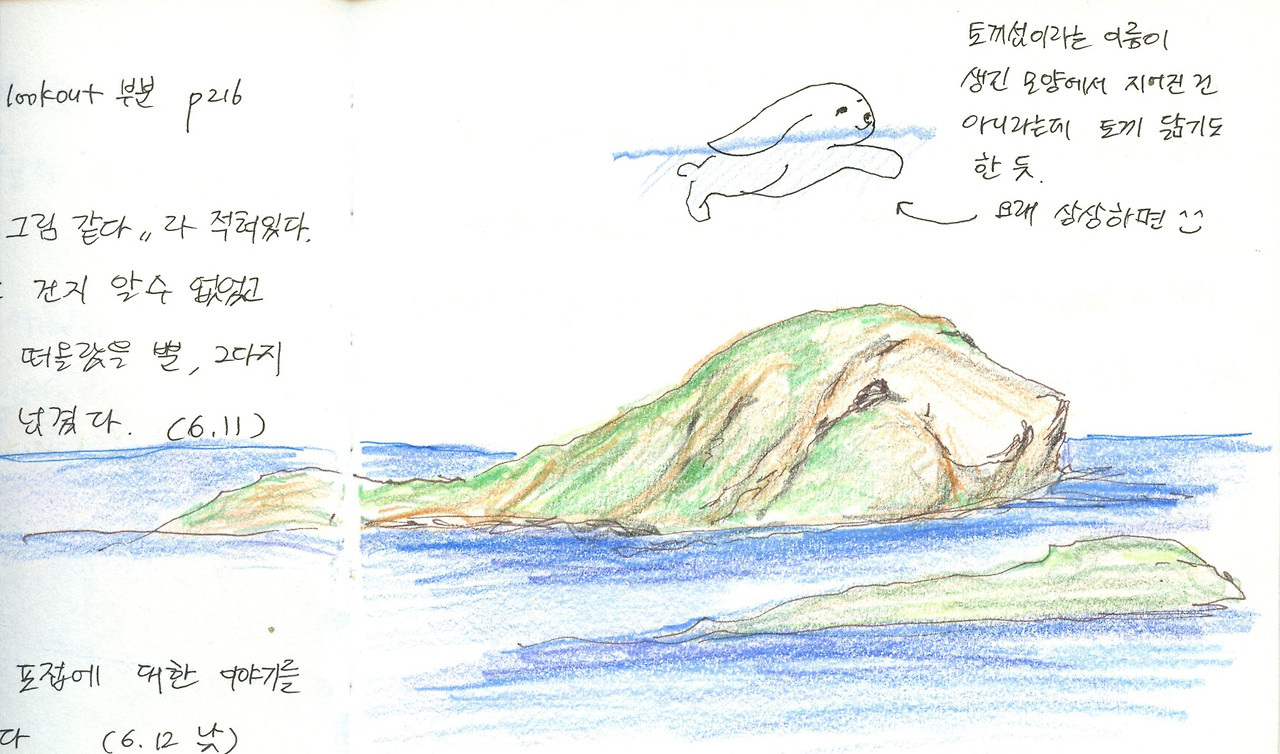 lookout 부분 p216
그림 같다" 라 적혀있다.
건지 알수 없었고
떠올랐을 뿐, 그다지
넘겼다. (6.11)
포접에 대한 이야기를
다 (6.12 낮)
토끼섬이라는 이름이
생긴 모양에서 지어진 건
아니라는데 토끼 닮기도
한 듯.
요래 상상하면